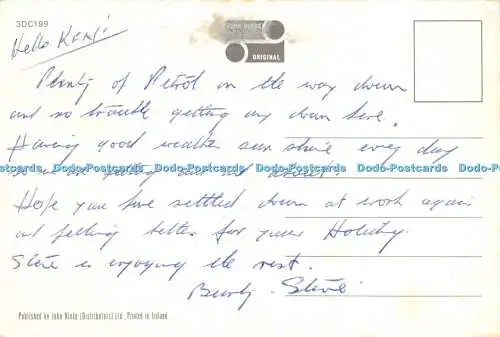 3DC199
JOHN HINDE
ORIGINAL
Hello Kenji
Plenty of Petrol on the way down
and no trouble getting any down here.
Having good weather sun shine every day
so we are getting out and about.
Dodo-Postcards Dodo-Postcards Dodo-Postcards Dodo-Postcards Dodo-Postcards
Hope you have settled down at work again
and feeling better for your Holiday.
Steve is enjoying the rest.
Steve
Published by John Hinde (Distributors) Ltd., Printed in Ireland.